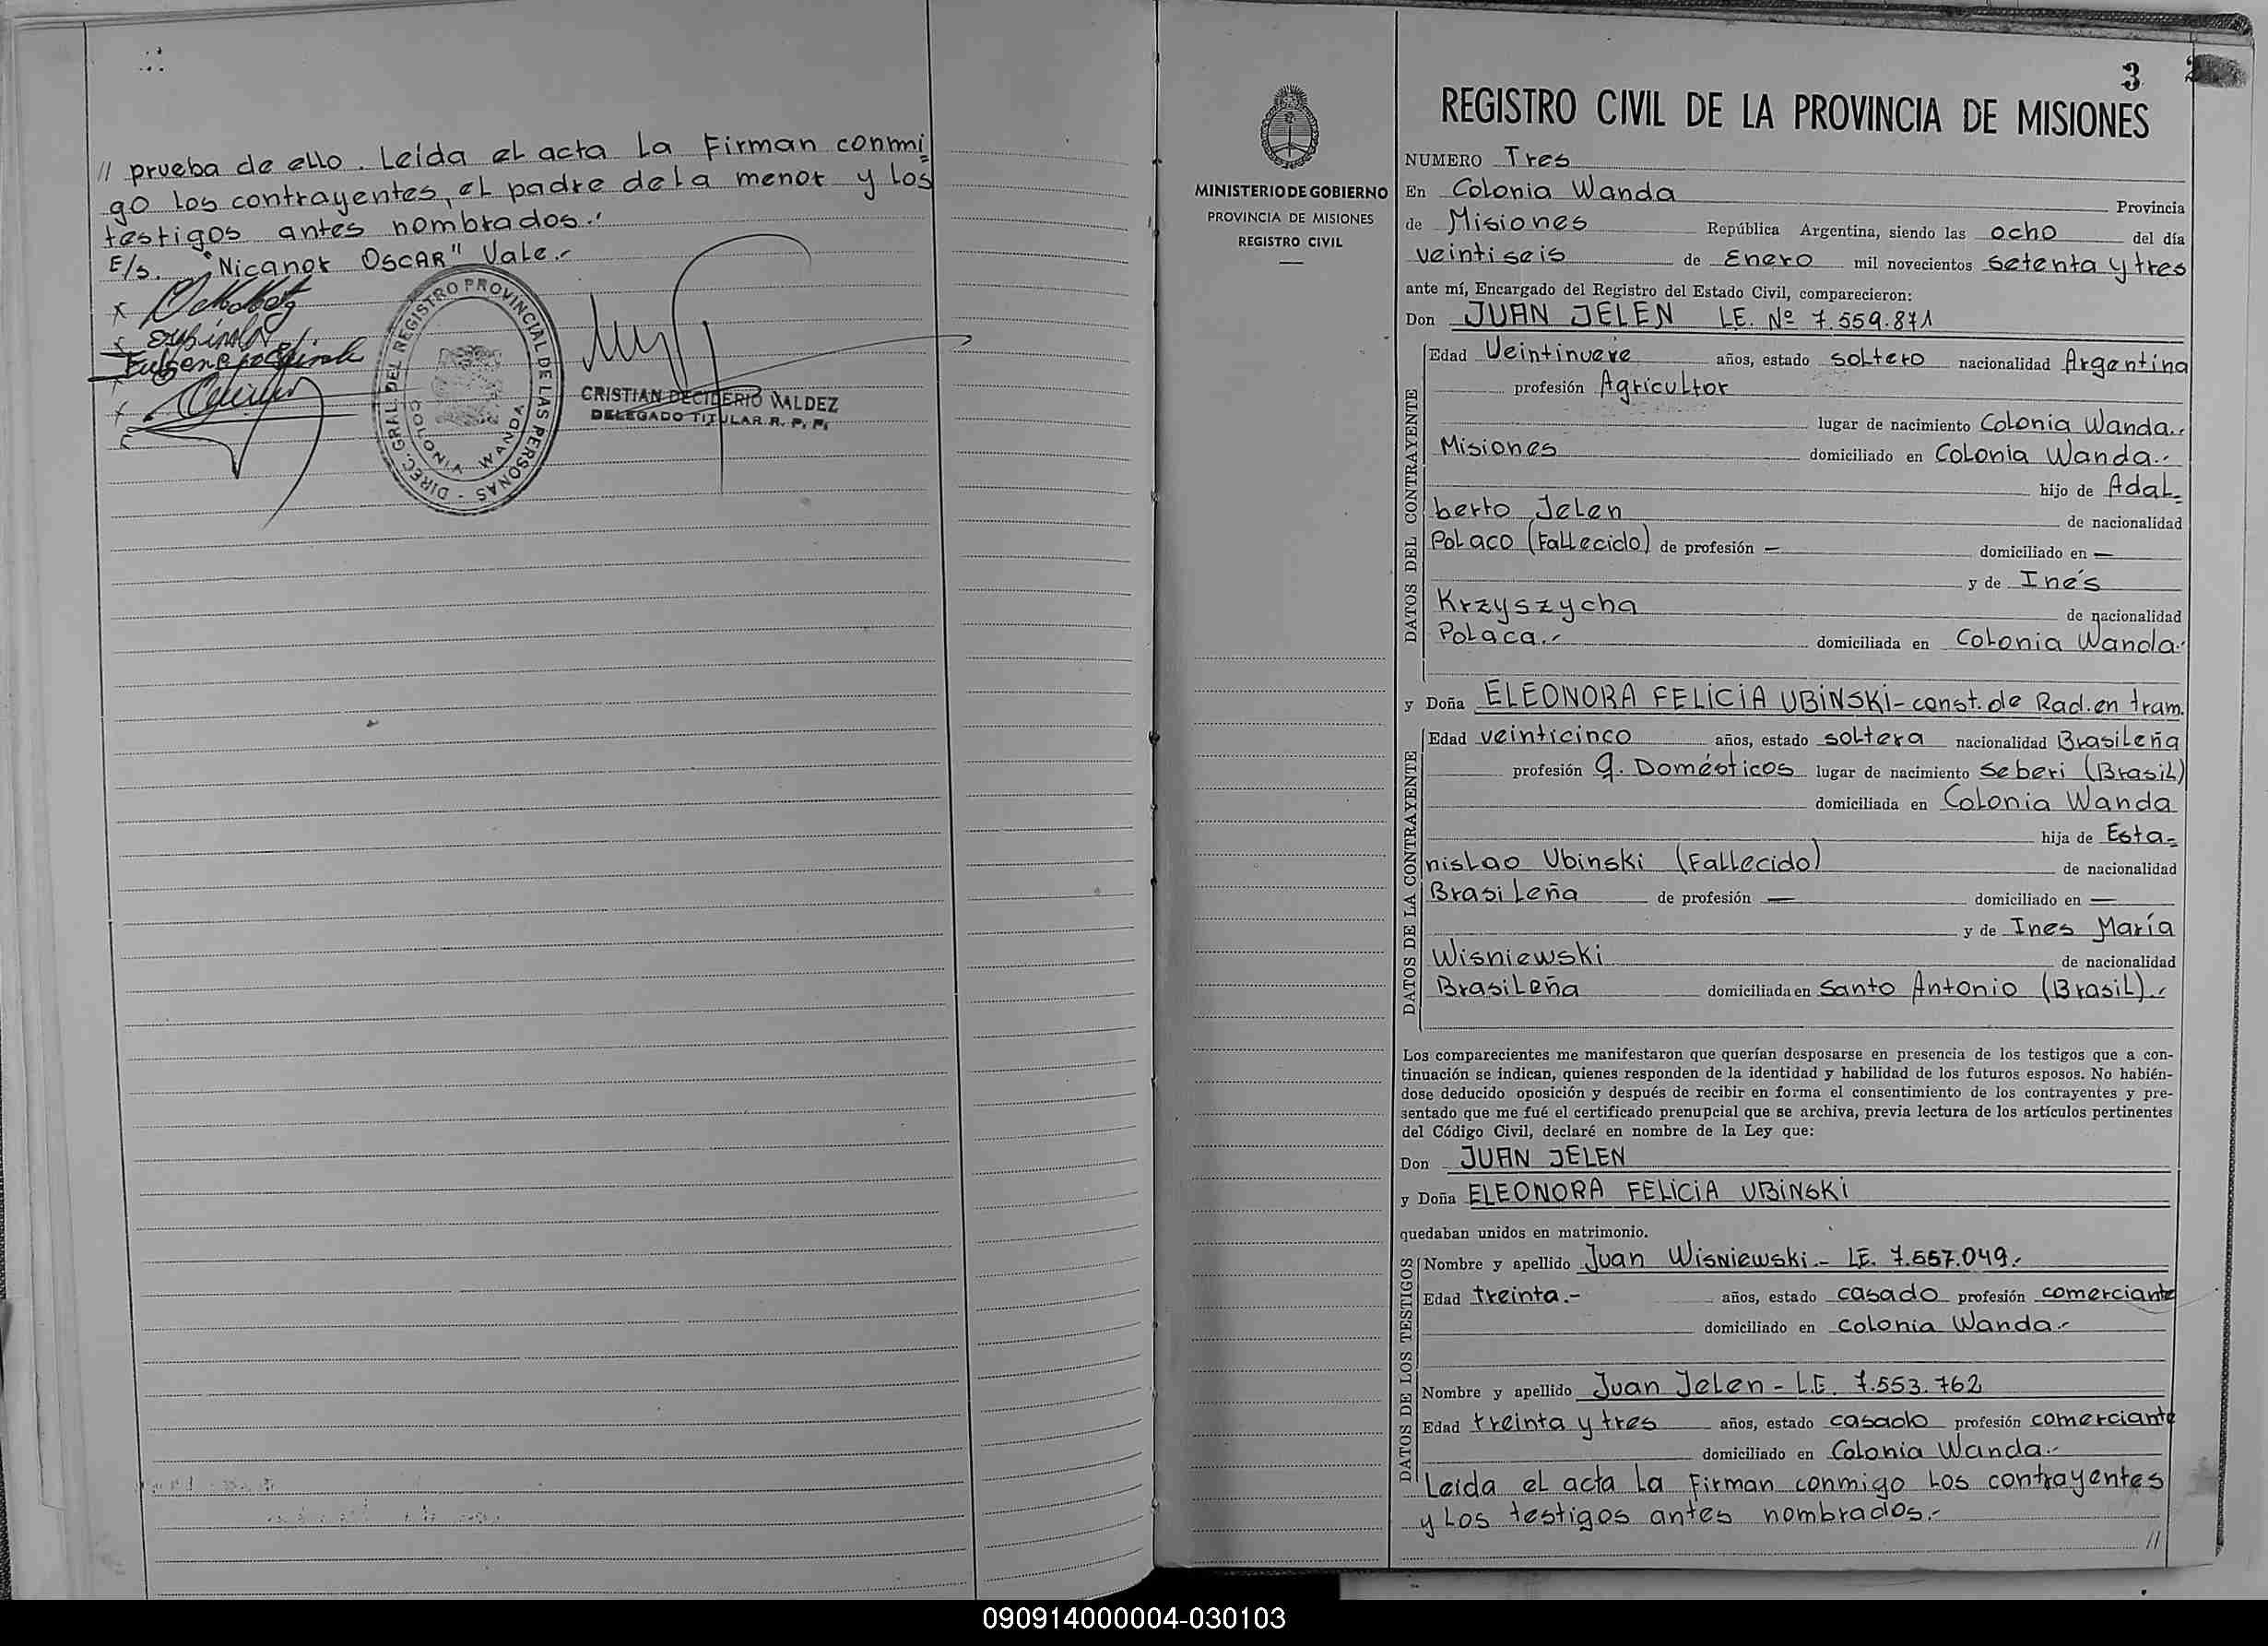 // prueba de ello. Leída el acta la Firman conmi=
go los contrayentes, el padre de la menor y los
testigos antes nombrados.-
E/s. "Nicanor OSCAR" Vale.-
DIREC. GRAL. DEL REGISTRO PROVINCIAL DE LAS PERSONAS -
COLONIA WANDA
CRISTIAN DECIDERIO VALDEZ
DELEGADO TITULAR R. P. P.
3
MINISTERIO DE GOBIERNO
PROVINCIA DE MISIONES
REGISTRO CIVIL
REGISTRO CIVIL DE LA PROVINCIA DE MISIONES
NUMERO Tres
En Colonia Wanda Provincia
de Misiones República Argentina, siendo las ocho del día
veintiseis de Enero mil novecientos setenta y tres
ante mí, Encargado del Registro del Estado Civil, comparecieron:
Don JUAN JELEN LE. Nº 7.559.871
DATOS DEL CONTRAYENTE
Edad Veintinueve años, estado soltero nacionalidad Argentina
profesión Agricultor
lugar de nacimiento Colonia Wanda.-
Misiones domiciliado en Colonia Wanda.-
hijo de Adal=
berto Jelen de nacionalidad
Polaco (Fallecido) de profesión — domiciliado en —
y de Inés
Krzyszycha de nacionalidad
Polaca.- domiciliada en Colonia Wanda.-
y Doña ELEONORA FELICIA UBINSKI - const. de Rad. en tram.
DATOS DE LA CONTRAYENTE
Edad veinticinco años, estado soltera nacionalidad Brasileña
profesión q. Domésticos lugar de nacimiento Seberi (Brasil)
domiciliada en Colonia Wanda
hija de Esta=
nislao Ubinski (Fallecido) de nacionalidad
Brasileña de profesión — domiciliado en —
y de Ines María
Wisniewski de nacionalidad
Brasileña domiciliada en Santo Antonio (Brasil).-
Los comparecientes me manifestaron que querían desposarse en presencia de los testigos que a con-
tinuación se indican, quienes responden de la identidad y habilidad de los futuros esposos. No habién-
dose deducido oposición y después de recibir en forma el consentimiento de los contrayentes y pre-
sentado que me fué el certificado prenupcial que se archiva, previa lectura de los artículos pertinentes
del Código Civil, declaré en nombre de la Ley que:
Don JUAN JELEN
y Doña ELEONORA FELICIA UBINSKI
quedaban unidos en matrimonio.
DATOS DE LOS TESTIGOS
Nombre y apellido Juan Wisniewski.- LE. 7.557.049.-
Edad treinta.- años, estado casado profesión comerciante
domiciliado en Colonia Wanda.-
Nombre y apellido Juan Jelen - L.E. 7.553.762
Edad treinta y tres años, estado casado profesión comerciante
domiciliado en Colonia Wanda.-
Leida el acta la Firman conmigo los contrayentes
y los testigos antes nombrados.-
//
090914000004-030103